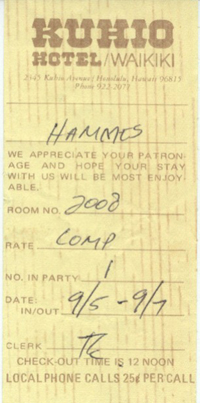 KUHIO
HOTEL/WAIKIKI
2345 Kuhio Avenue/Honolulu, Hawaii 96815
Phone 922-2071
HAMMES
WE APPRECIATE YOUR PATRON-
AGE AND HOPE YOUR STAY
WITH US WILL BE MOST ENJOY-
ABLE.
ROOM NO. 2008
RATE COMP
NO. IN PARTY 1
DATE: 9/5 - 9/7
IN/OUT
CLERK
CHECK-OUT TIME IS 12 NOON
LOCAL PHONE CALLS 25¢ PER CALL